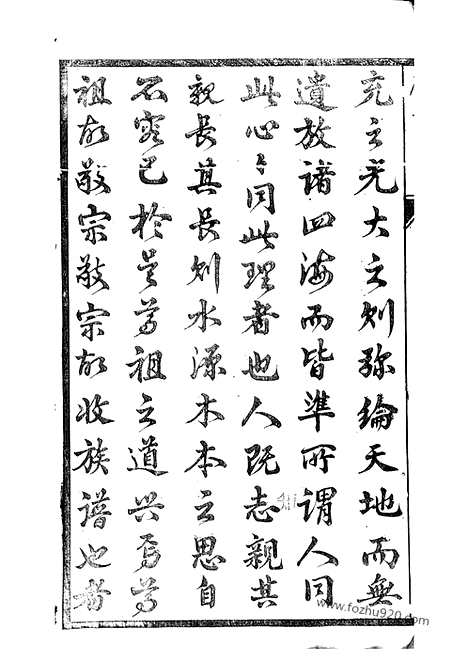 充之光大之則弥綸天地而無
遺放諸四海而皆準所謂人同
此心々同此理者也人既志親其
親長其長則水源木本之思自
不容已於是尊祖之道興焉尊
祖故敬宗敬宗故收族譜也者
www.fozhu920.com